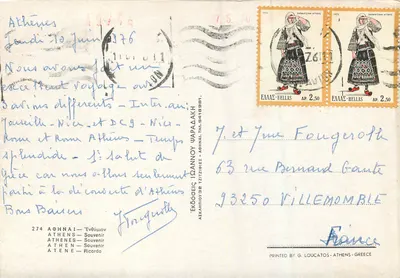 Athènes
Jeudi 10 juin 1976
Nous avons fait un
excellent voyage en
avions différents - Inter.
Marseille - Nice et DC9 - Nice -
Rome et Rome Athènes - Temps
splendide. Il
Grèce car nous allons seulement
partir à la découverte d'Athènes
Bons Baisers
J Fougeroth
274 ΑΘΗΝΑΙ - Ἐνθύμιον
ATHENS - Souvenir
ATHENES - Souvenir
ATHEN - Souvenir
ATENE - Ricordo
Ἐκδόσεις ΙΩΑΝΝΟΥ ΨΑΡΑΔΑΚΗ
ΕΛΛΑΣ-HELLAS ΔΡ. 2,50
ΕΛΛΑΣ-HELLAS ΔΡ. 2,50
J. et Mme Fougeroth
63 rue Bernard Gante
93250 VILLEMOMBLE
France
PRINTED BY G. LOUCATOS - ATHENS, GREECE